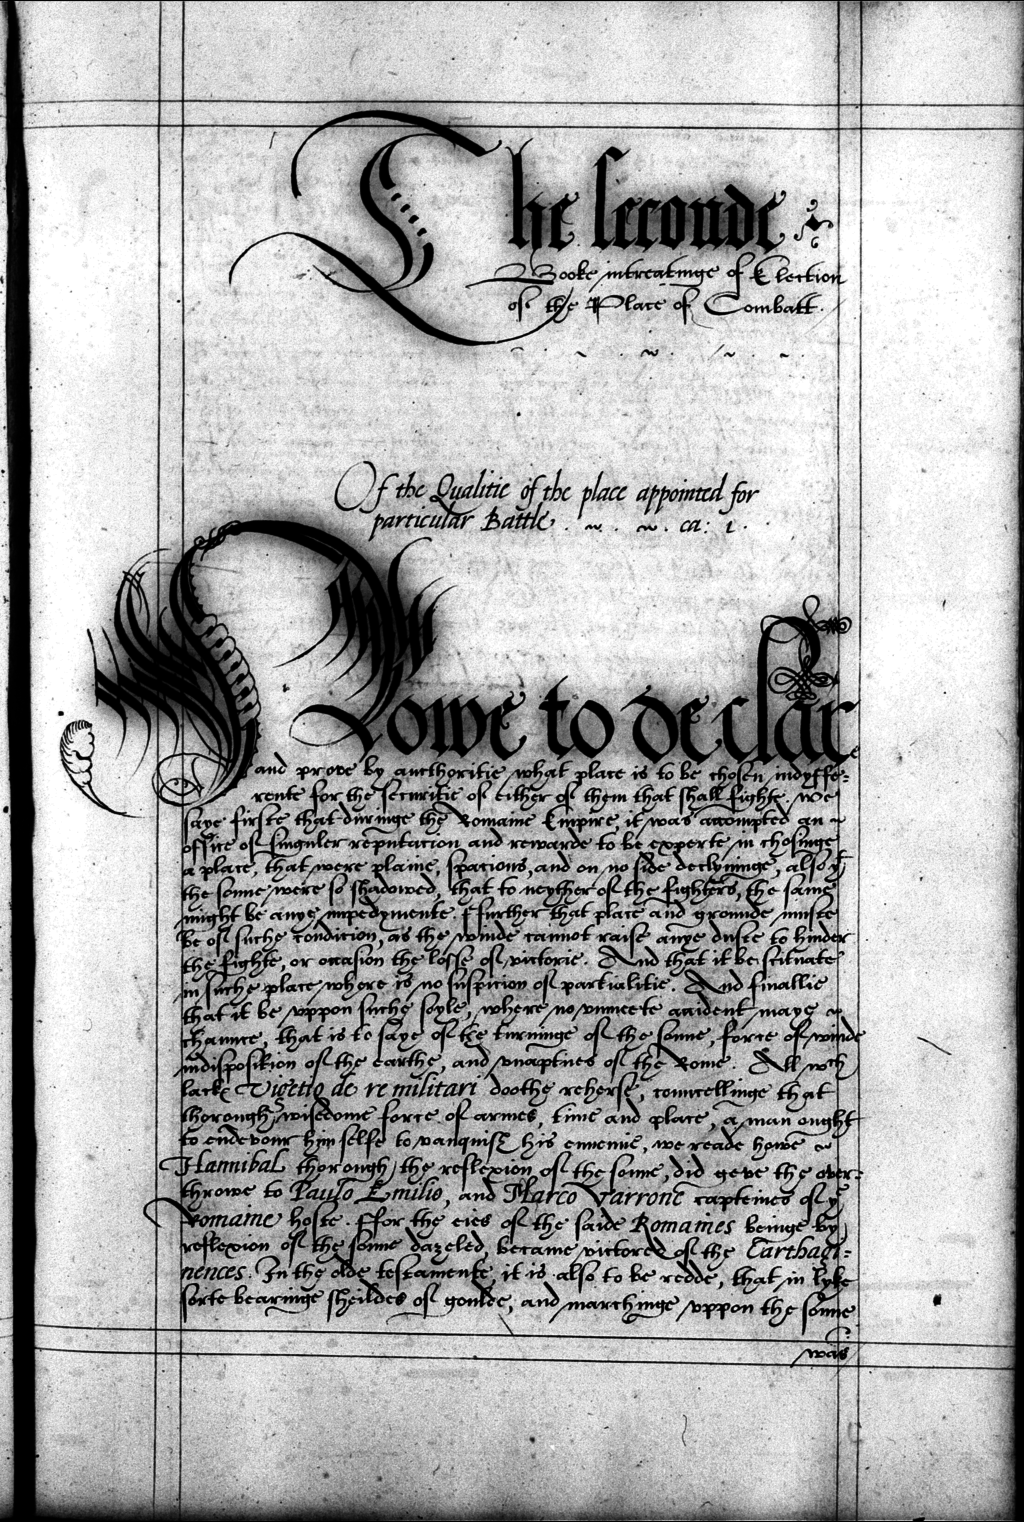 The seconde
Booke intreatinge of Election
of the Place of Combatt.
Of the Qualitie of the place appointed for
particular Battle. ca: 1.
Nowe to declare
and prove by aucthoritie what place is to be chosen indyffe-
rente for the securitie of either of them that shall fighte. we
saye firste that duringe the Romaine Empire it was accompted an
office of singuler reputacion and rewarde to be experte in chosinge
a place, that were plaine, spacious, and on no side declyninge, also yf
the sonne were so shadowed, that to neyther of the fighters, the same
might be anye impedymente. ffurther that place and grounde muste
be of suche condicion, as the winde cannot raise anye duste to hinder
the fighte, or occasion the losse of victorie. And that it be scituate
in suche place where is no suspicion of partialitie. And finallie
that it be vppon suche soyle, where no vnmeete accident maye
chaunce, that is to saye of the turninge of the sonne, force of winde
indisposition of the earthe, and vnaptnes of the Rome. All wch
lacke Vigetio de re militari doothe reherse, councellinge that
thorough wisedome force of armes, time and place, a man ought
to endevour him selfe to vanquish his ennemie, we reade howe
Hannibal thorough the reflexion of the sonne, did geve the over-
throwe to Paulo Emilio, and Marco Varrone capteines of ye
Romaine hoste. ffor the eies of the saide Romaines beinge by
reflexion of the sonne dazeled, became victored of the Carthagi-
nences. In the olde testamente it is also to be redde, that in lyke
sorte bearinge sheildes of goulde, and marchinge vppon the sonne
was